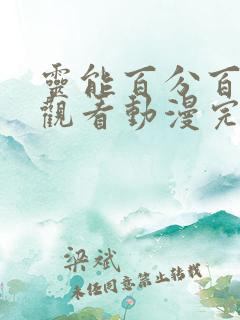 靈能百分百
觀看動漫完
梁斌
未经同意禁止转载